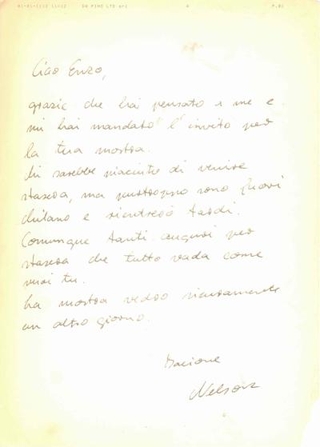 Ciao Enzo,
grazie che hai pensato a me e
mi hai mandato l'invito per
la tua mostra.
Mi sarebbe piaciuto di venire
stasera, ma purtroppo sono fuori
Milano e rientrerò tardi.
Comunque tanti auguri per
stasera che tutto vada come
vuoi tu.
La mostra vedrò sicuramente
un altro giorno.
Bacione
Nelson